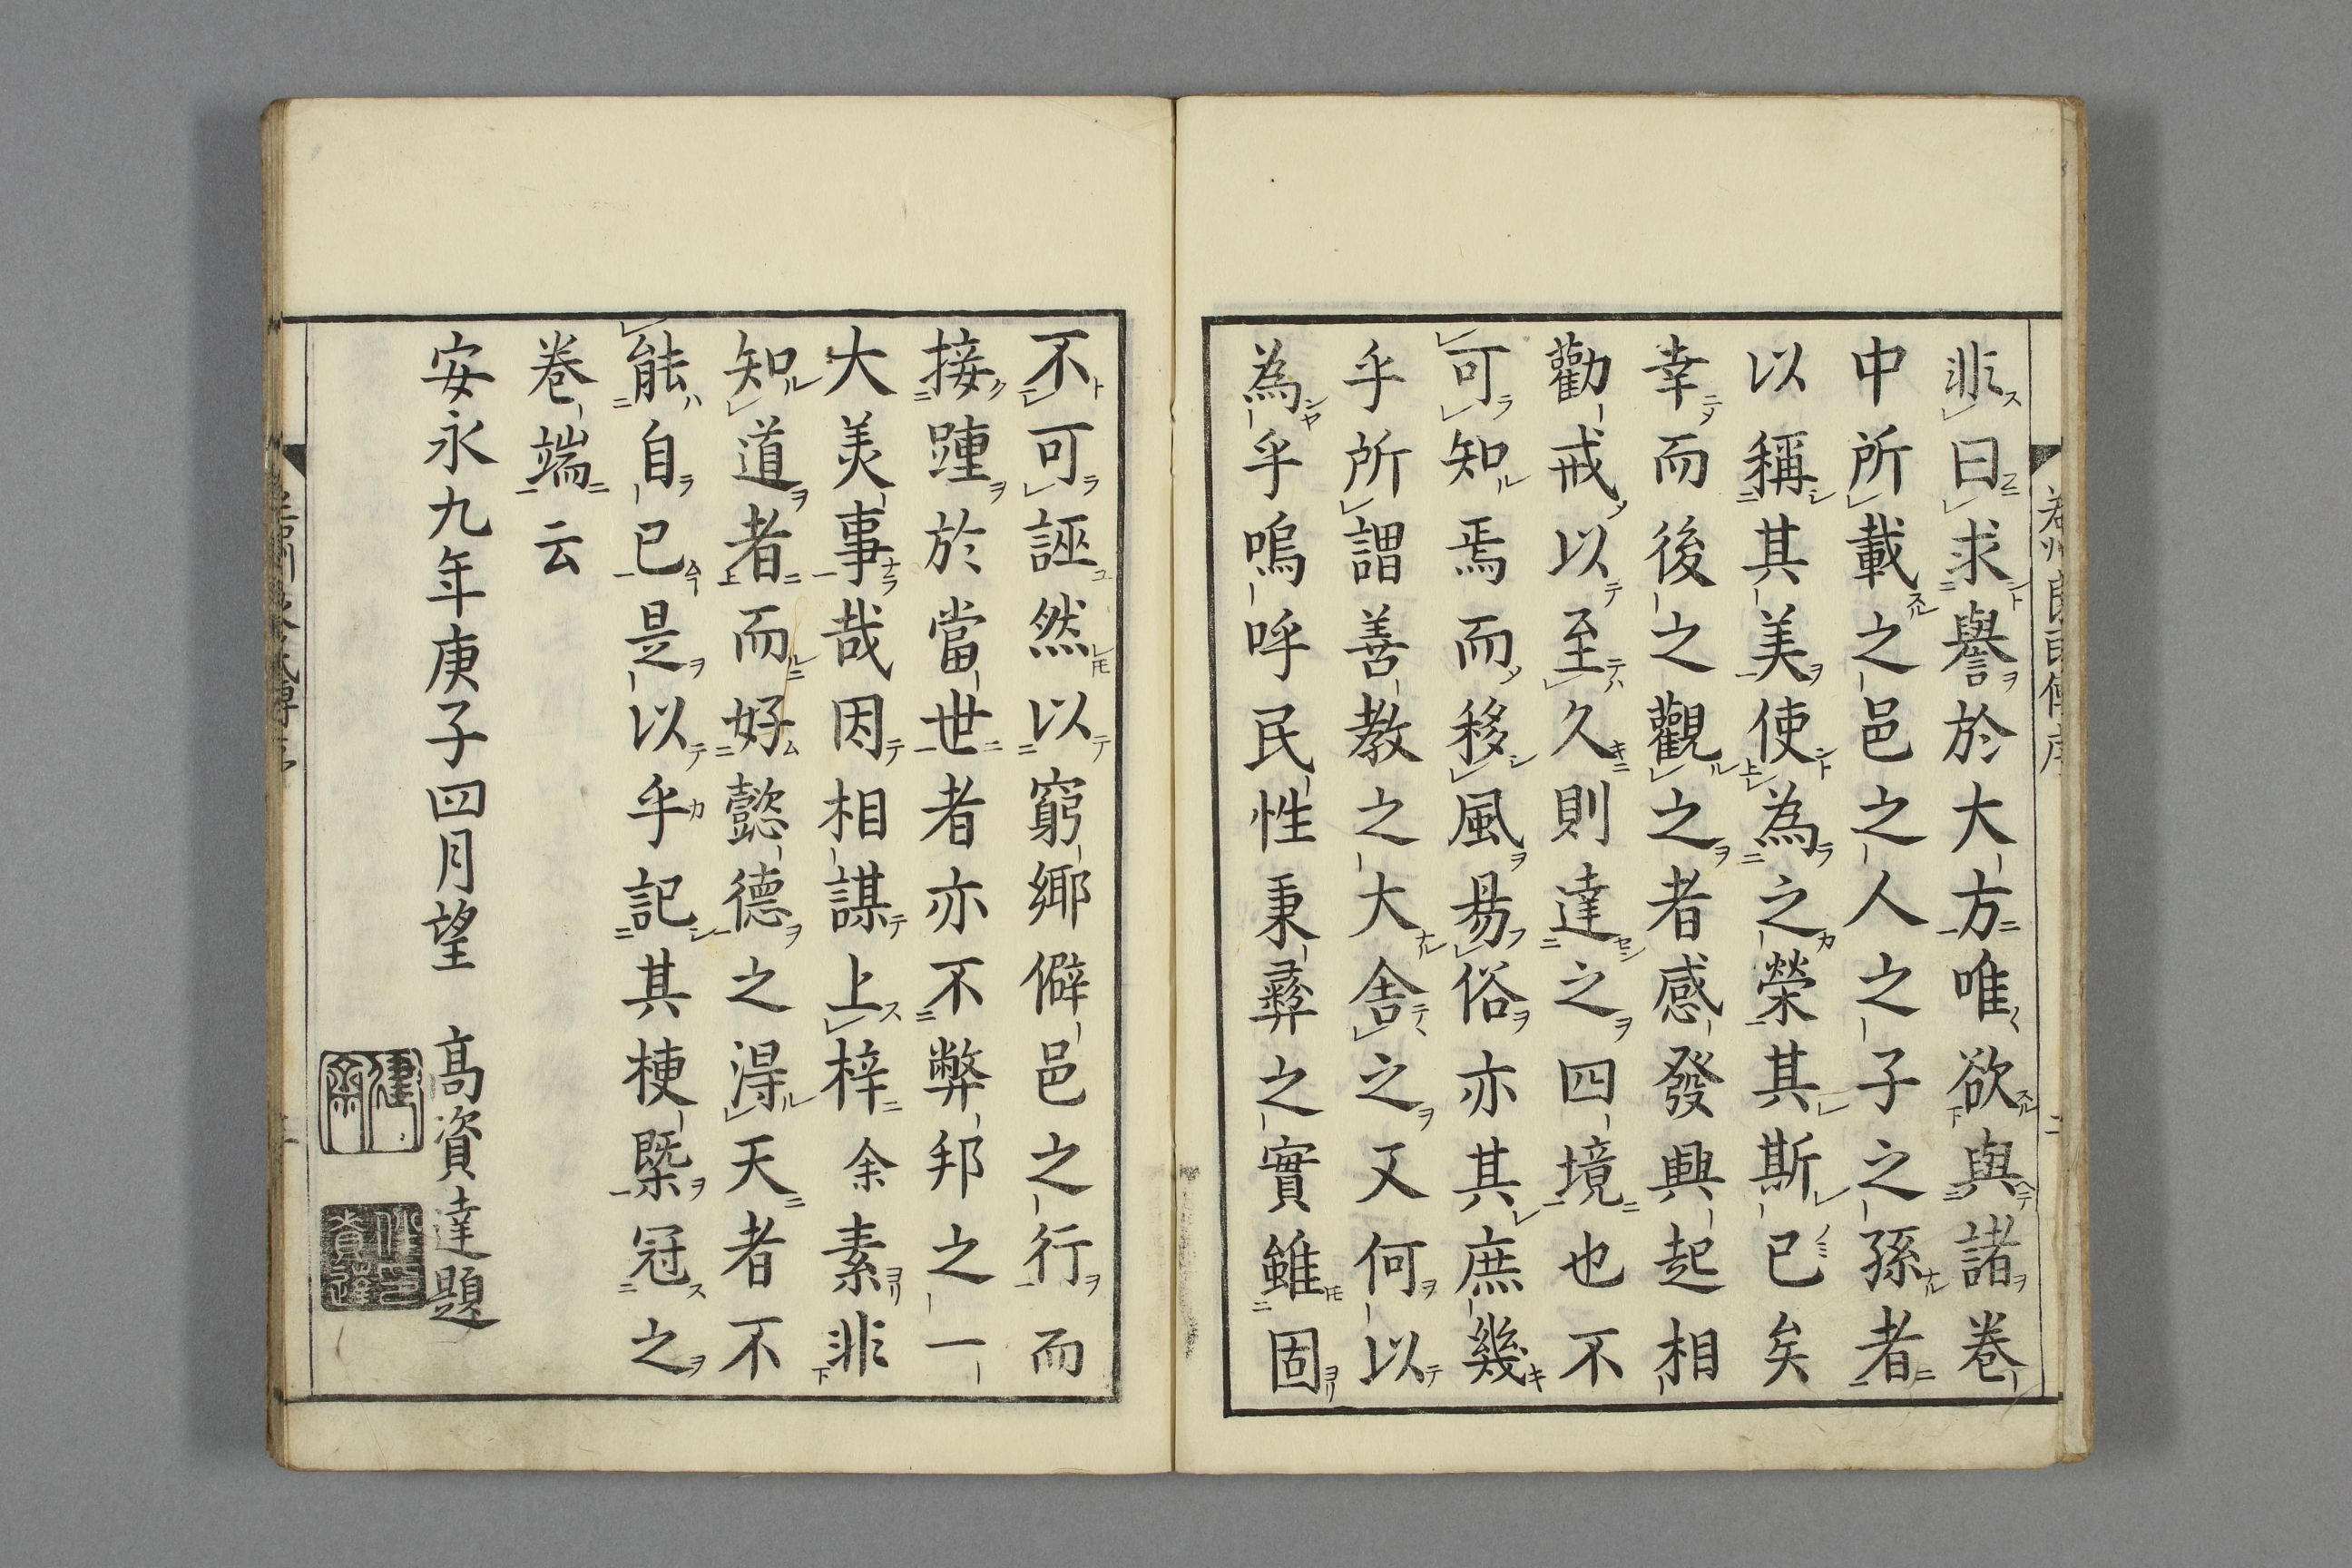 非曰求譽於大方唯欲與諸巻
中所載之邑之人之子之孫者
以稱其美使為之榮其斯已矣
幸而後之觀之者感發興起相
勸戒以至久則達之四境也不
可知焉而移風易俗亦其庶幾
乎所謂善教之大舎之又何以
為乎嗚呼民性秉彝之實雖固
不可誣然以窮鄉僻邑之行而
接踵於當世者亦不弊邦之一
大美事哉因相謀上梓余素非
知道者而好懿德之得天者不
能自已是以乎記其梗槩冠之
巻端云
安永九年庚子四月望 高資達題